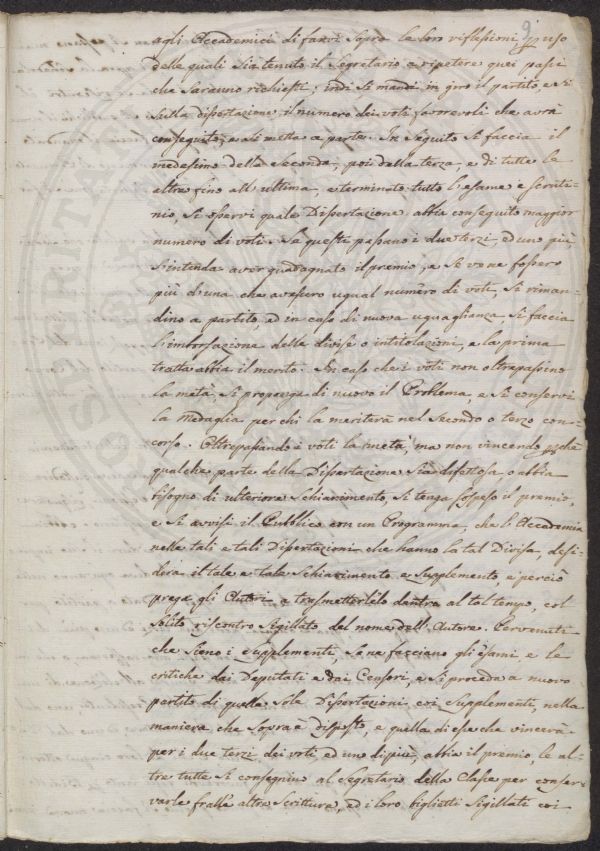 9
agli Accademici di farvi sopra le loro riflessioni, in uso
delle quali sia tenuto il Segretario a ripetere quei passi
che saranno richiesti; indi si mandi in giro il partito, e si
sulla dissertazione il numero dei voti favorevoli che avrà
conseguito, e si metta a parte. In seguito si faccia il
medesimo della seconda, poi della terza, e di tutte le
altre fino all'ultima, e terminato tutto l'esame e scruti-
nio, si osservi quale Dissertazione abbia conseguito maggior
numero di voti. Se questi passano i due terzi, ed uno più
s'intenda aver guadagnato il premio, e se ve ne fossero
più di una che avessero ugual numero di voti, si riman-
dino a partito, ed in caso di nuova uguaglianza si faccia
l'imborsazione delle divise o intitolazioni, e la prima
tratta abbia il merito. In caso che i voti non oltrepassino
la metà, si proponga di nuovo il Problema, e si conservi
la Medaglia per chi la meriterà nel secondo o terzo con-
corso. Oltrepassando i voti la metà, ma non vincendo perchè
qualche parte della Dissertazione sia difettosa, o abbia
bisogno di ulteriore schiarimento, si tenga sospeso il premio,
e si avvisi il Pubblico con un Programma, che l'Accademia
nelle tali e tali Dissertazioni che hanno la tal Divisa, desi-
dera il tale e tale schiarimento e supplemento, e perciò
prega gli Autori a trasmetterlelo dentro al tal tempo, col
solito riscontro sigillato del nome dell'Autore. Pervenuti
che sieno i supplementi, se ne facciano gli esami e le
critiche dai Deputati e dai Censori, e si proceda a nuovo
partito di quelle sole Dissertazioni coi supplementi, nella
maniera che sopra è disposto, e quella di esse che vincerà
per i due terzi dei voti ed uno dipiù, abbia il premio, le al-
tre tutte si consegnino al Segretario della Classe per conser-
varle fralle altre scritture, ed i loro biglietti sigillati coi